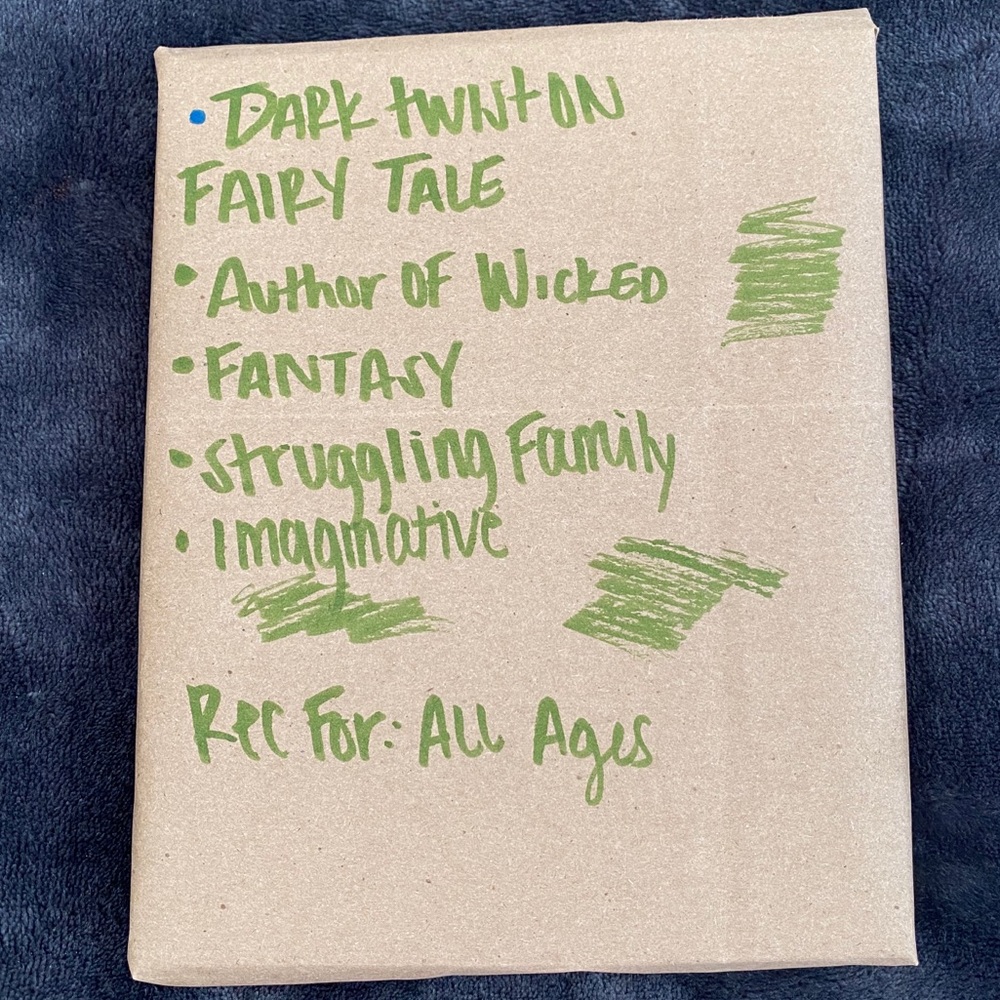 • DARK twist ON
FAIRY TALE
• Author OF Wicked
• FANTASY
• Struggling Family
• Imaginative
Rec For: All Ages